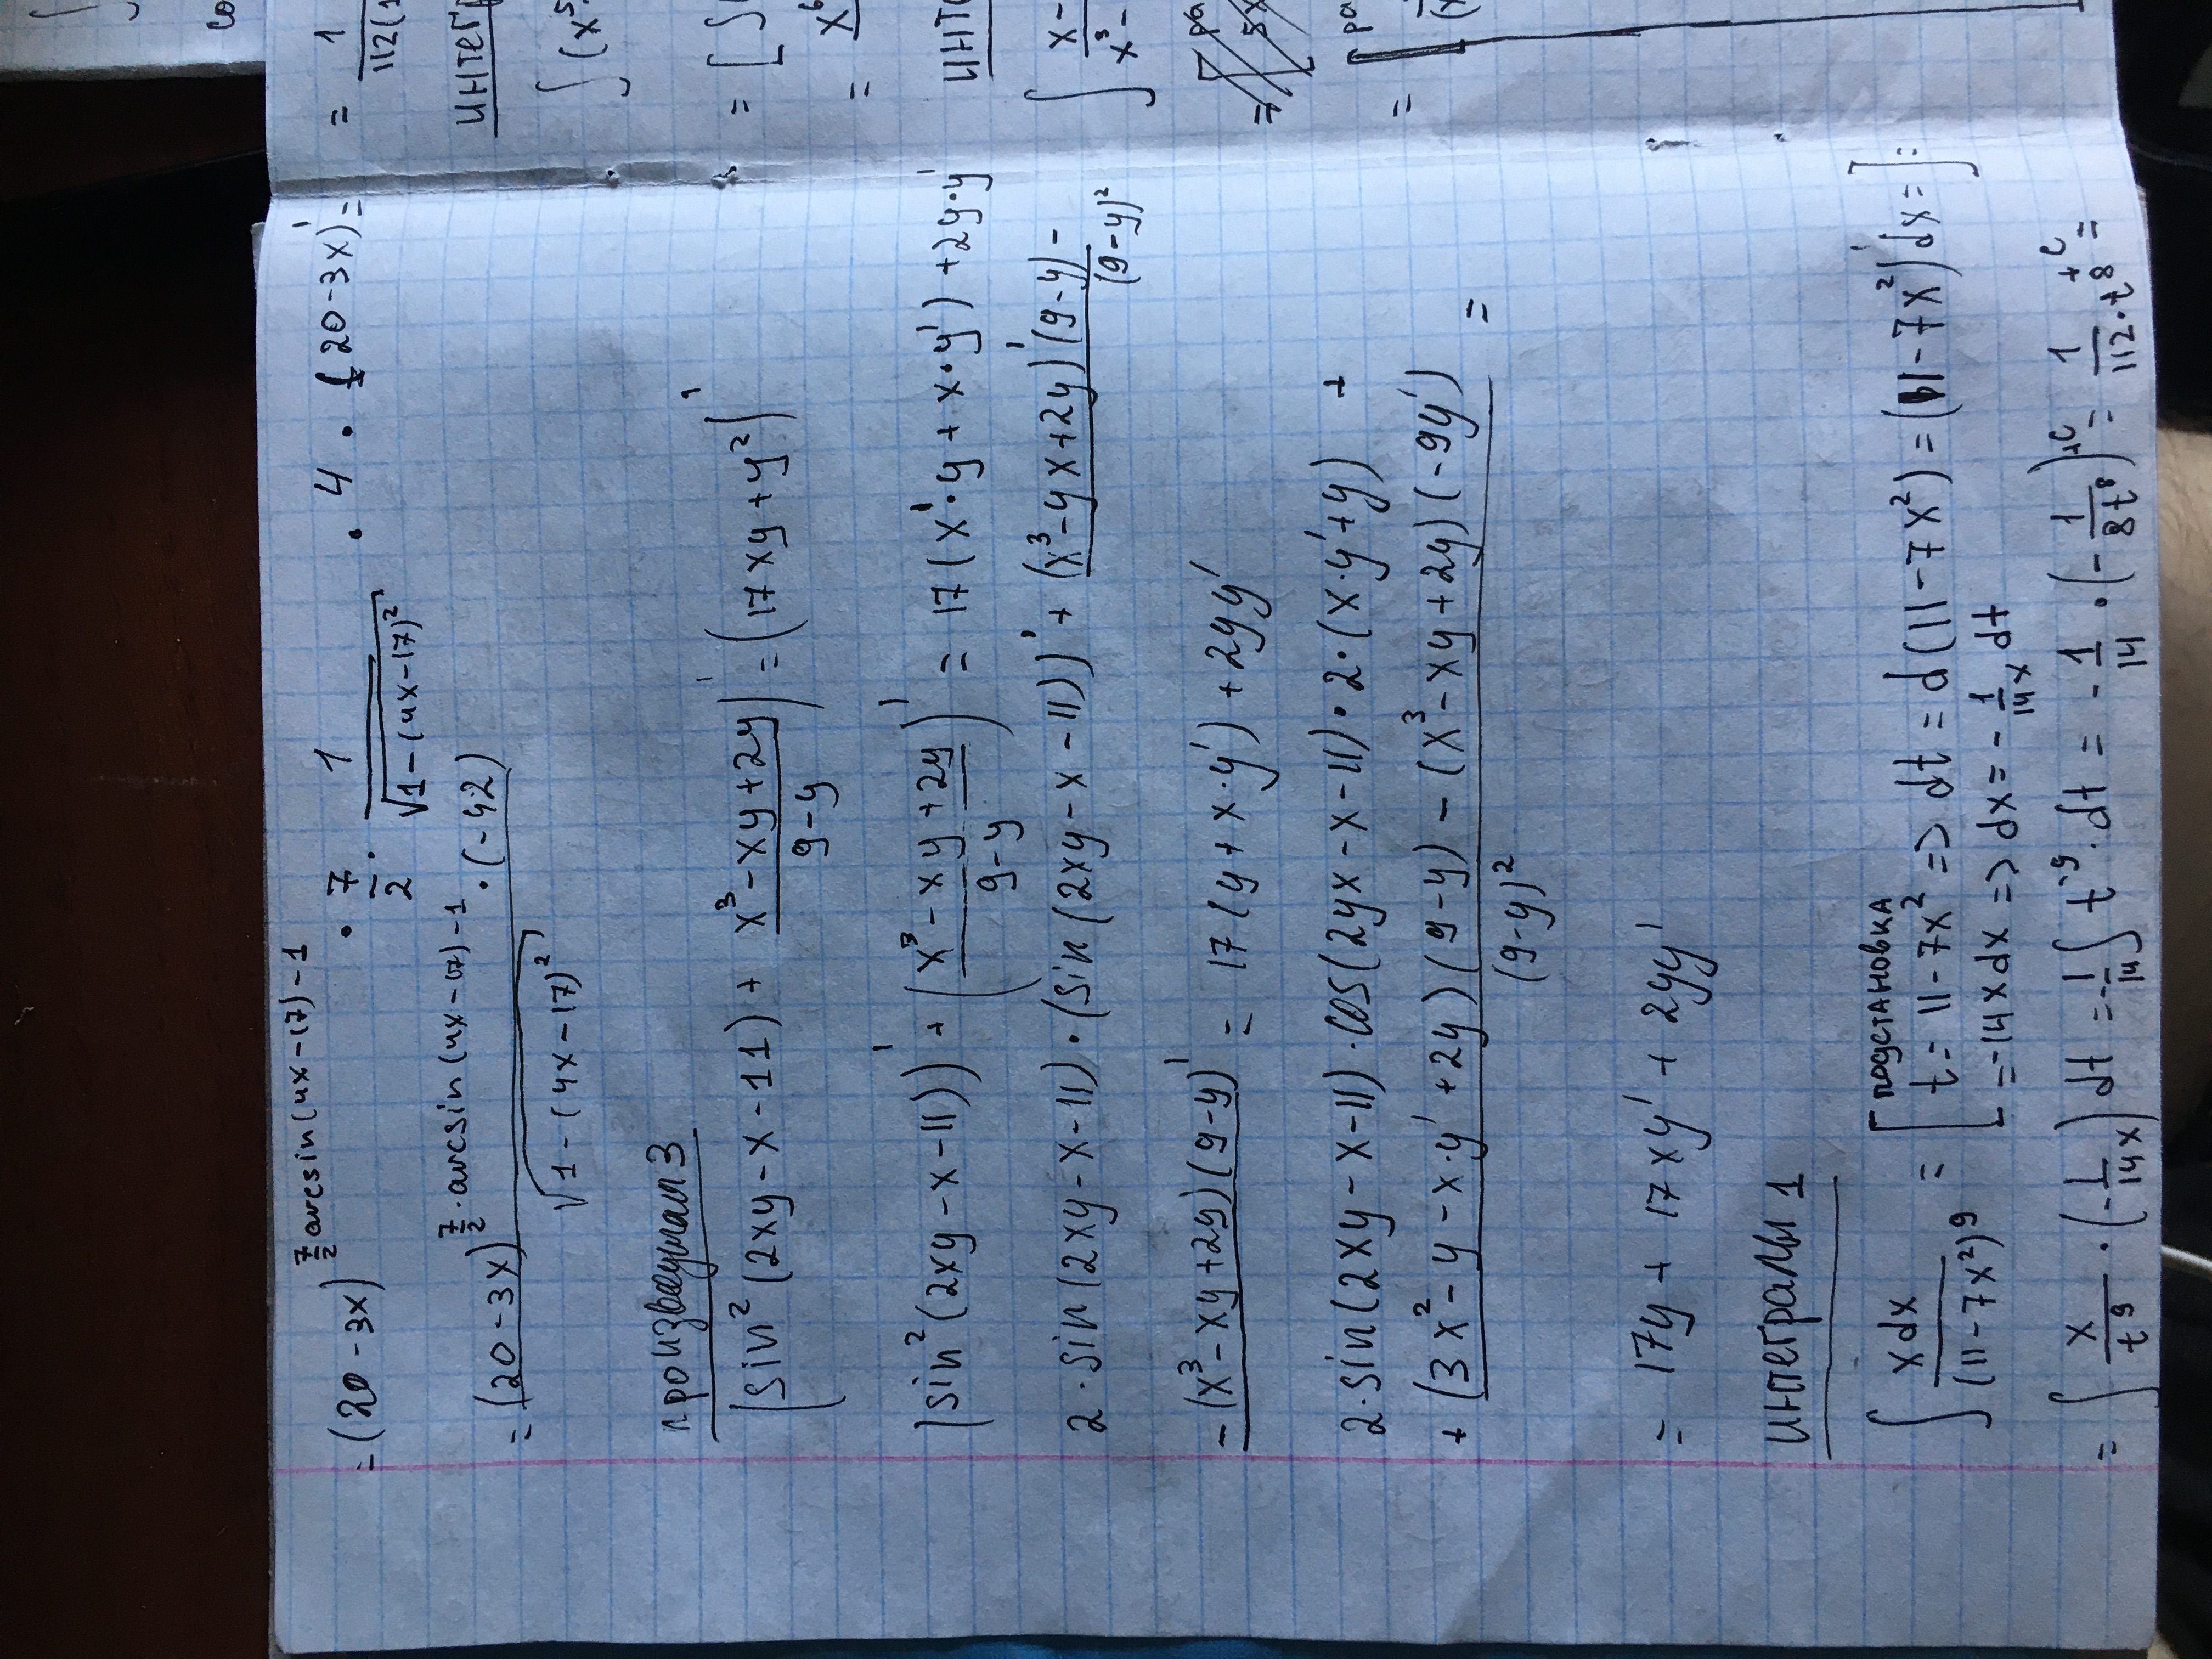 = (20 - 3x)^{7/2 arcsin(4x-17) - 1} · 7/2 · 1/√(1-(4x-17)²) · 4 · (20-3x)' =
= (20-3x)^{7/2 · arcsin(4x-17) - 1} · (-42) / √(1-(4x-17)²)
производная 3
(sin²(2xy - x - 11) + (x³ - xy + 2y)/(9-y))' = (17xy + y²)'
(sin²(2xy - x - 11))' + ((x³ - xy + 2y)/(9-y))' = 17(x'·y + x·y') + 2y·y'
2·sin(2xy - x - 11)·(sin(2xy - x - 11))' + (x³ - yx + 2y)'(9-y) - / (9-y)²
- (x³ - xy + 2y)(9-y)' = 17(y + x·y') + 2yy'
2·sin(2xy - x - 11)·cos(2yx - x - 11)·2·(x·y' + y) +
+ ((3x² - y - x·y' + 2y)(9-y) - (x³ - xy + 2y)(-9y'))/(9-y)² =
= 17y + 17xy' + 2yy'
интегралы 1
∫ xdx/(11-7x²)⁹ = [подстановка
t = 11 - 7x² => dt = d(11 - 7x²) = (11 - 7x²)'dx = ] =
= -14xdx => dx = - 1/14x dt
= ∫ x/t⁹ · (-1/14x) dt = -1/14 ∫ t⁻⁹ · dt = - 1/14 · (- 1/8t⁸) + C = 1/112·t⁸ + C =
= 1
112(1
интегр
∫ (x⁵
= [ ∫
= x⁶
инте
∫ x -
x³ -
=
5x
= [